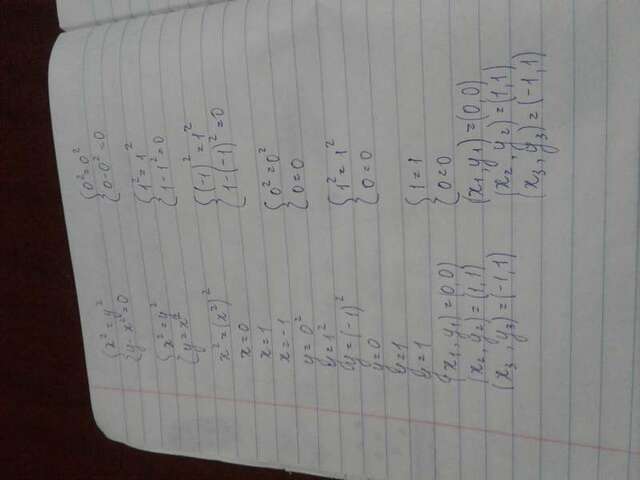 x² = y²
y - x² = 0
x² = y²
y = x²
x² = (x²)²
x = 0
x = 1
x = -1
y = 0²
y = 1²
y = (-1)²
y = 0
y = 1
y = 1
(x₁, y₁) = (0,0)
(x₂, y₂) = (1,1)
(x₃, y₃) = (-1,1)
0² = 0²
0 - 0² = 0
1² = 1²
1 - 1² = 0
(-1)² = 1²
1 - (-1)² = 0
0² = 0²
0 = 0
1² = 1²
0 = 0
1 = 1
0 = 0
(x₁, y₁) = (0,0)
(x₂, y₂) = (1,1)
(x₃, y₃) = (-1,1)